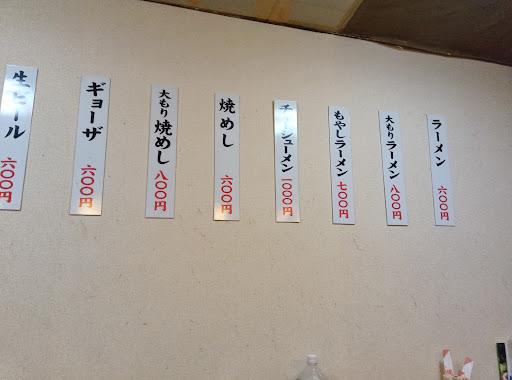 ラーメン 六〇〇円
大もりラーメン 八〇〇円
もやしラーメン 七〇〇円
チャーシューメン 一〇〇〇円
焼めし 六〇〇円
大もり焼めし 八〇〇円
ギョーザ 六〇〇円
生ビール 六〇〇円